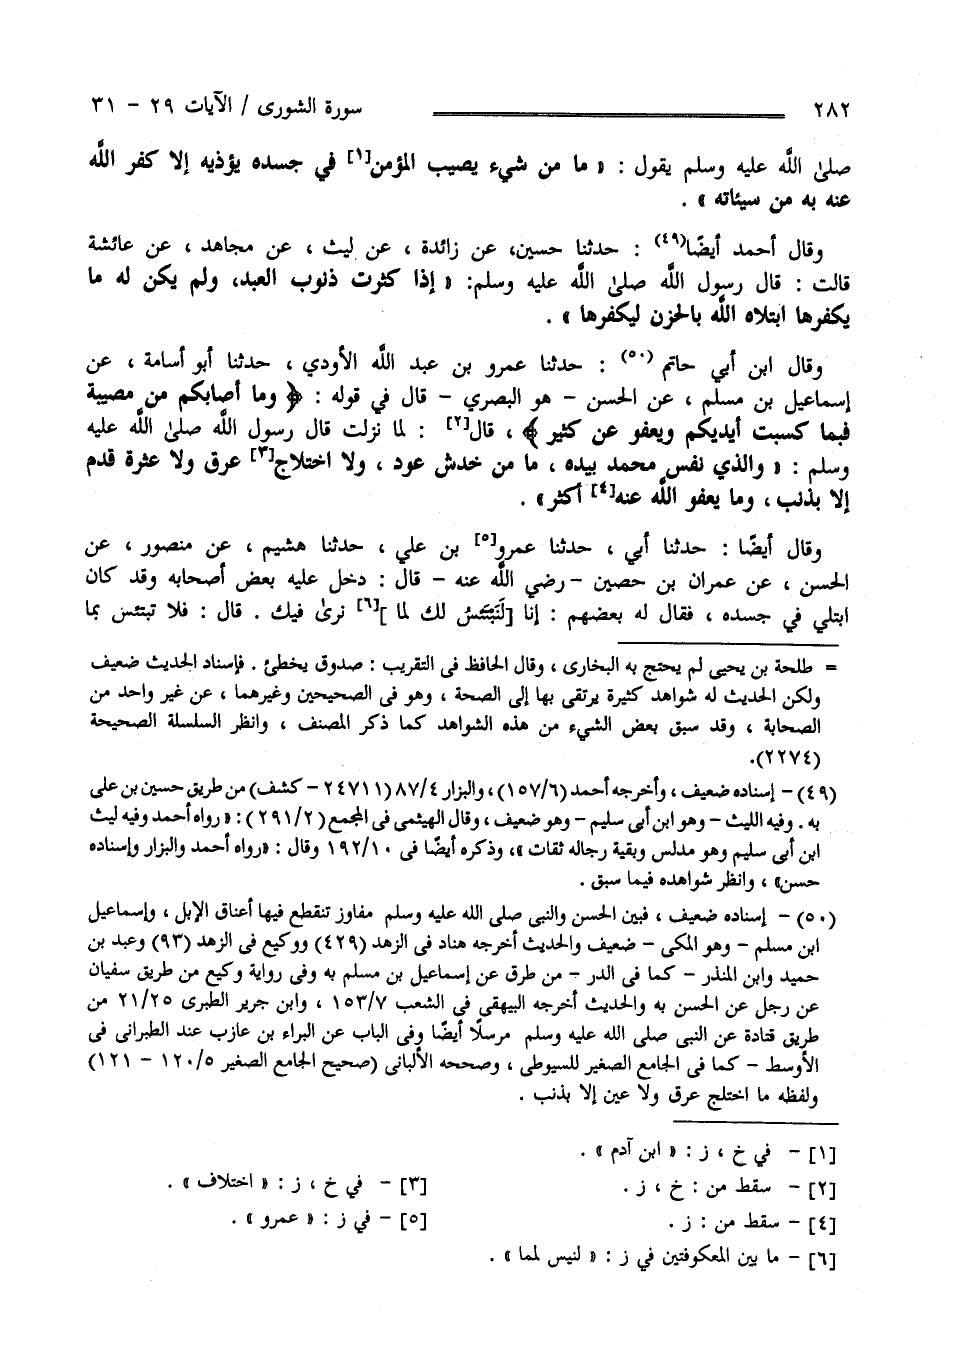 ٢٨٢ سورة الشورى / الآيات ٢٩ - ٣١
صلىٰ اللَّه عليه وسلم يقول : « ما من شيء يصيب المؤمن[١] في جسده يؤذيه إلا كفر اللَّه
عنه به من سيئاته » .
وقال أحمد أيضًا(٤٩) : حدثنا حسين، عن زائدة ، عن ليث ، عن مجاهد ، عن عائشة
قالت : قال رسول اللَّه صلىٰ اللَّه عليه وسلم: « إذا كثرت ذنوب العبد، ولم يكن له ما
يكفرها ابتلاه اللَّه بالحزن ليكفرها » .
وقال ابن أبي حاتم (٥٠) : حدثنا عمرو بن عبد اللَّه الأودي ، حدثنا أبو أسامة ، عن
إسماعيل بن مسلم ، عن الحسن - هو البصري - قال في قوله : ﴿ وما أصابكم من مصيبة
فبما كسبت أيديكم ويعفو عن كثير ﴾ ، قال[٢] : لما نزلت قال رسول اللَّه صلىٰ اللَّه عليه
وسلم : « والذي نفس محمد بيده ، ما من خدش عود ، ولا اختلاج[٣] عرق ولا عثرة قدم
إلا بذنب ، وما يعفو اللَّه عنه[٤] أكثر» .
وقال أيضًا : حدثنا أبي ، حدثنا عمرو[٥] بن علي ، حدثنا هشيم ، عن منصور ، عن
الحسن ، عن عمران بن حصين -رضي اللَّه عنه - قال : دخل عليه بعض أصحابه وقد كان
ابتلي في جسده ، فقال له بعضهم : إنا [لَنَبْتَئِسُ لك لما ][٦] نرىٰ فيك . قال : فلا تبتئس بما
= طلحة بن يحيى لم يحتج به البخارى ، وقال الحافظ فى التقريب : صدوق يخطئ . فإسناد الحديث ضعيف
ولكن الحديث له شواهد كثيرة يرتقى بها إلى الصحة ، وهو فى الصحيحين وغيرهما ، عن غير واحد من
الصحابة ، وقد سبق بعض الشيء من هذه الشواهد كما ذكر المصنف ، وانظر السلسلة الصحيحة
(٢٢٧٤).
(٤٩) - إسناده ضعيف ، وأخرجه أحمد (١٥٧/٦)، والبزار ٨٧/٤ (٢٤٧١١ - كشف) من طريق حسين بن على
به . وفيه الليث - وهو ابن أبى سليم - وهو ضعيف ، وقال الهيثمى فى المجمع (٢٩١/٢): « رواه أحمد وفيه ليث
ابن أبى سليم وهو مدلس وبقية رجاله ثقات »، وذكره أيضًا فى ١٩٢/١٠ وقال : «رواه أحمد والبزار وإسناده
حسن» ، وانظر شواهده فيما سبق .
(٥٠) - إسناده ضعيف ، فبين الحسن والنبي صلى الله عليه وسلم مفاوز تنقطع فيها أعناق الإبل ، وإسماعيل
ابن مسلم - وهو المكى - ضعيف والحديث أخرجه هناد فى الزهد (٤٢٩) ووكيع فى الزهد (٩٣) وعبد بن
حميد وابن المنذر - كما فى الدر - من طرق عن إسماعيل بن مسلم به وفى رواية وكيع من طريق سفيان
عن رجل عن الحسن به والحديث أخرجه البيهقى في الشعب ١٥٣/٧ ، وابن جرير الطبرى ٢١/٢٥ من
طريق قتادة عن النبي صلى الله عليه وسلم مرسلًا أيضًا وفى الباب عن البراء بن عازب عند الطبرانى فى
الأوسط - كما فى الجامع الصغير للسيوطى ، وصححه الألبانى (صحيح الجامع الصغير ١٢٠/٥ - ١٢١)
ولفظه ما اختلج عرق ولا عين إلا بذنب .
[١] - في خ ، ز : « ابن آدم » .
[٢] - سقط من : خ ، ز . [٣] - في خ ، ز : « اختلاف » .
[٤] - سقط من : ز . [٥] - في ز : « عمرو » .
[٦] - ما بين المعكوفتين في ز : « لنيس لمما » .